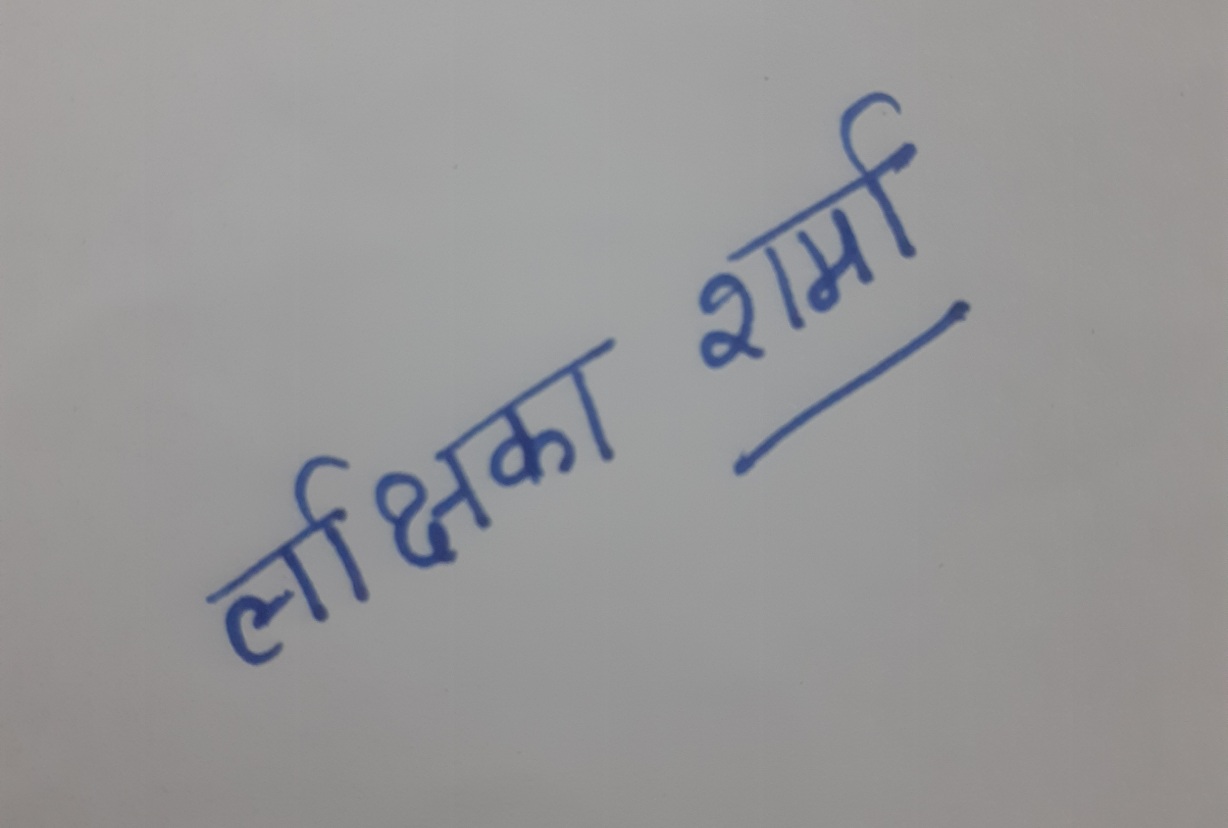 लक्षिका शर्मा